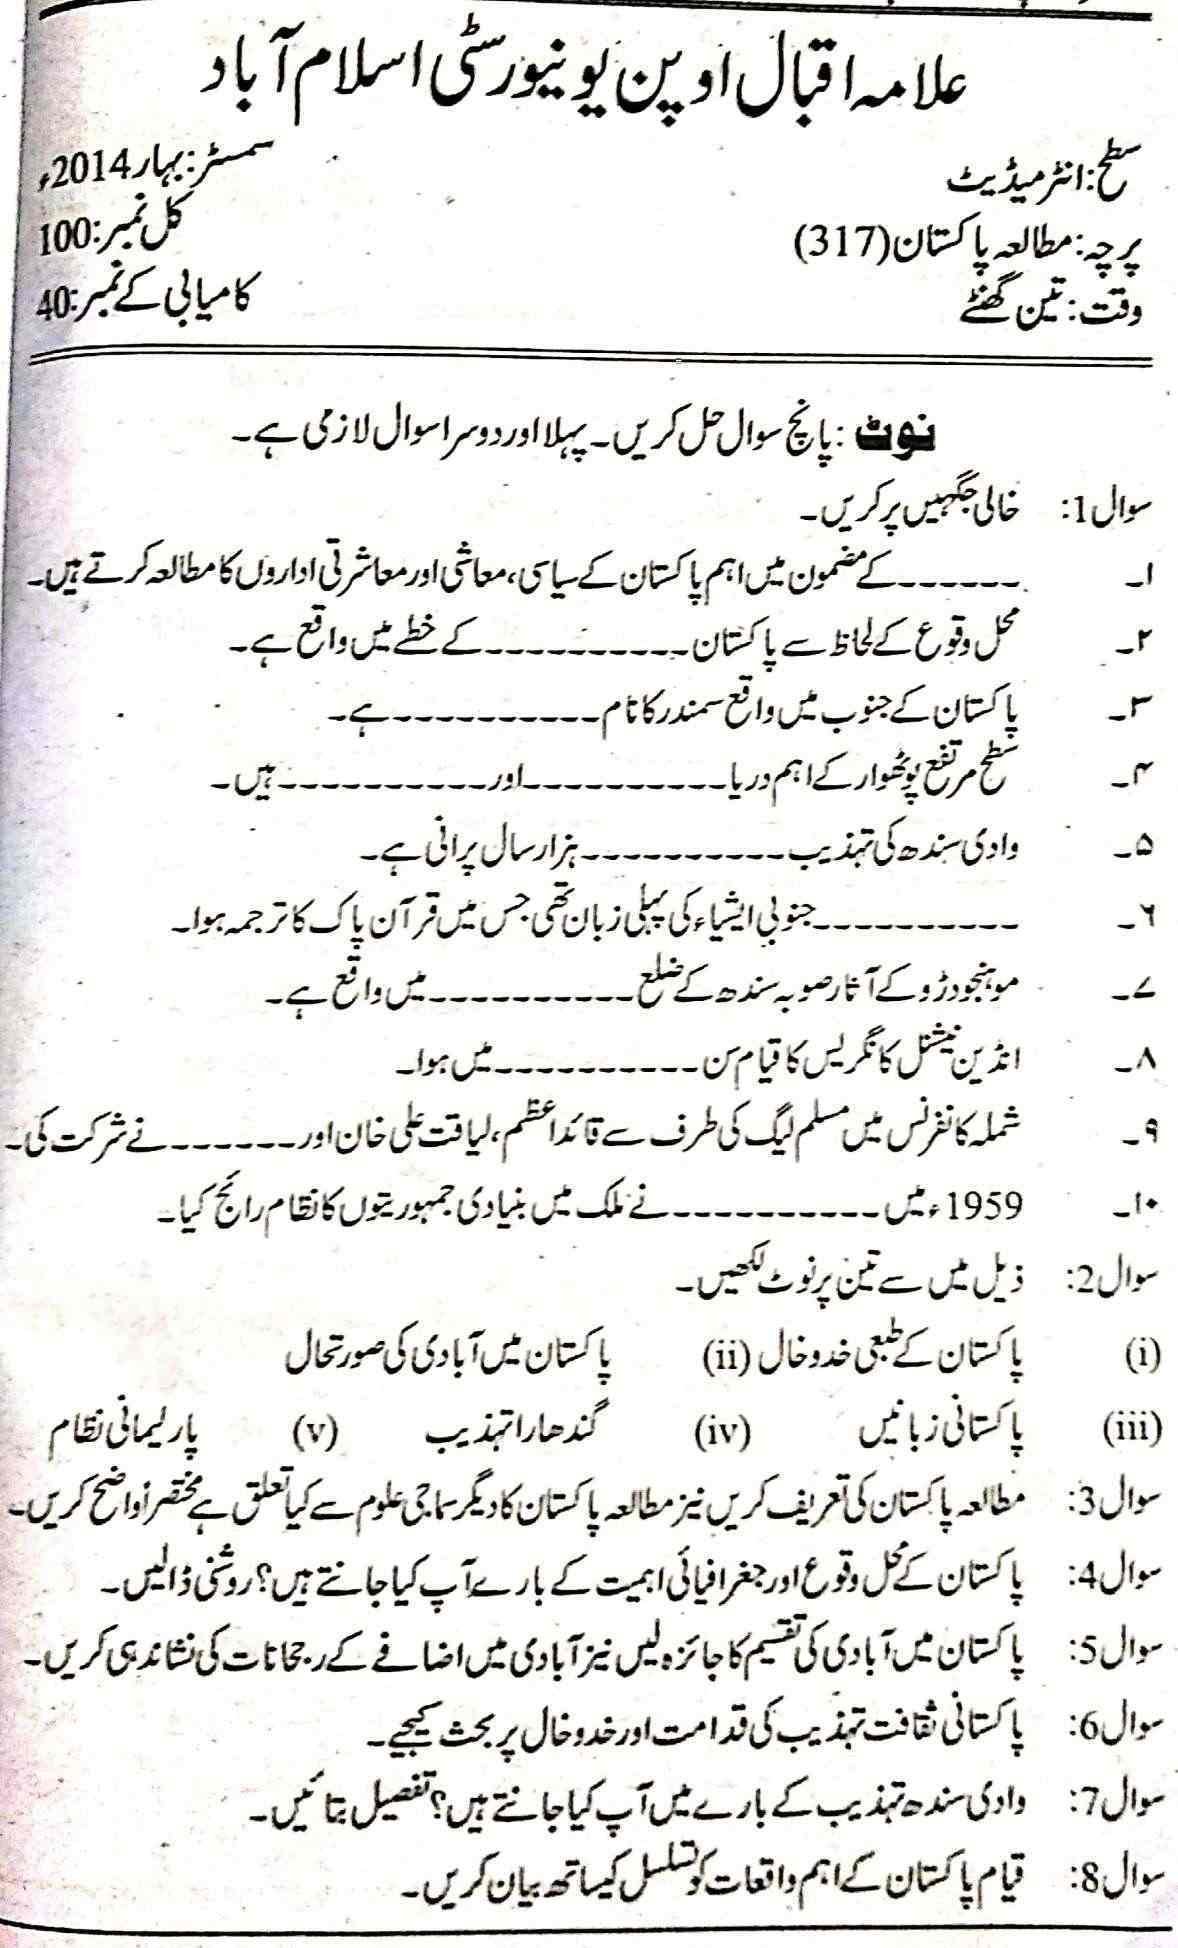 علامہ اقبال اوپن یونیورسٹی اسلام آباد
سطح: انٹرمیڈیٹ سمسٹر: بہار 2014ء
پرچہ: مطالعہ پاکستان (317) کل نمبر: 100
وقت: تین گھنٹے کامیابی کے نمبر: 40
نوٹ: پانچ سوال حل کریں۔ پہلا اور دوسرا سوال لازمی ہے۔
سوال 1: خالی جگہیں پر کریں۔
۱۔ ------ کے مضمون میں اہم پاکستان کے سیاسی، معاشی اور معاشرتی اداروں کا مطالعہ کرتے ہیں۔
۲۔ محل وقوع کے لحاظ سے پاکستان ---------- کے خطے میں واقع ہے۔
۳۔ پاکستان کے جنوب میں واقع سمندر کا نام ---------- ہے۔
۴۔ سطح مرتفع پوٹھوار کے اہم دریا ---------- اور ---------- ہیں۔
۵۔ وادی سندھ کی تہذیب ---------- ہزار سال پرانی ہے۔
۶۔ ---------- جنوبی ایشیاء کی پہلی زبان تھی جس میں قرآن پاک کا ترجمہ ہوا۔
۷۔ موہنجودڑو کے آثار صوبہ سندھ کے ضلع ---------- میں واقع ہے۔
۸۔ انڈین نیشنل کانگریس کا قیام سن ---------- میں ہوا۔
۹۔ شملہ کانفرنس میں مسلم لیگ کی طرف سے قائداعظم، لیاقت علی خان اور ------ نے شرکت کی۔
۱۰۔ 1959ء میں ---------- نے ملک میں بنیادی جمہوریتوں کا نظام رائج کیا۔
سوال 2: ذیل میں سے تین پر نوٹ لکھیں۔
(i) پاکستان کے طبعی خدوخال (ii) پاکستان میں آبادی کی صورتحال
(iii) پاکستانی زبانیں (iv) گندھارا تہذیب (v) پارلیمانی نظام
سوال 3: مطالعہ پاکستان کی تعریف کریں نیز مطالعہ پاکستان کا دیگر سماجی علوم سے کیا تعلق ہے مختصراً واضح کریں۔
سوال 4: پاکستان کے محل وقوع اور جغرافیائی اہمیت کے بارے آپ کیا جانتے ہیں؟ روشنی ڈالیں۔
سوال 5: پاکستان میں آبادی کی تقسیم کا جائزہ لیں نیز آبادی میں اضافے کے رجحانات کی نشاندہی کریں۔
سوال 6: پاکستانی ثقافت تہذیب کی قدامت اور خدوخال پر بحث کیجیے۔
سوال 7: وادی سندھ تہذیب کے بارے میں آپ کیا جانتے ہیں؟ تفصیل بتائیں۔
سوال 8: قیام پاکستان کے اہم واقعات کو تسلسل کیساتھ بیان کریں۔